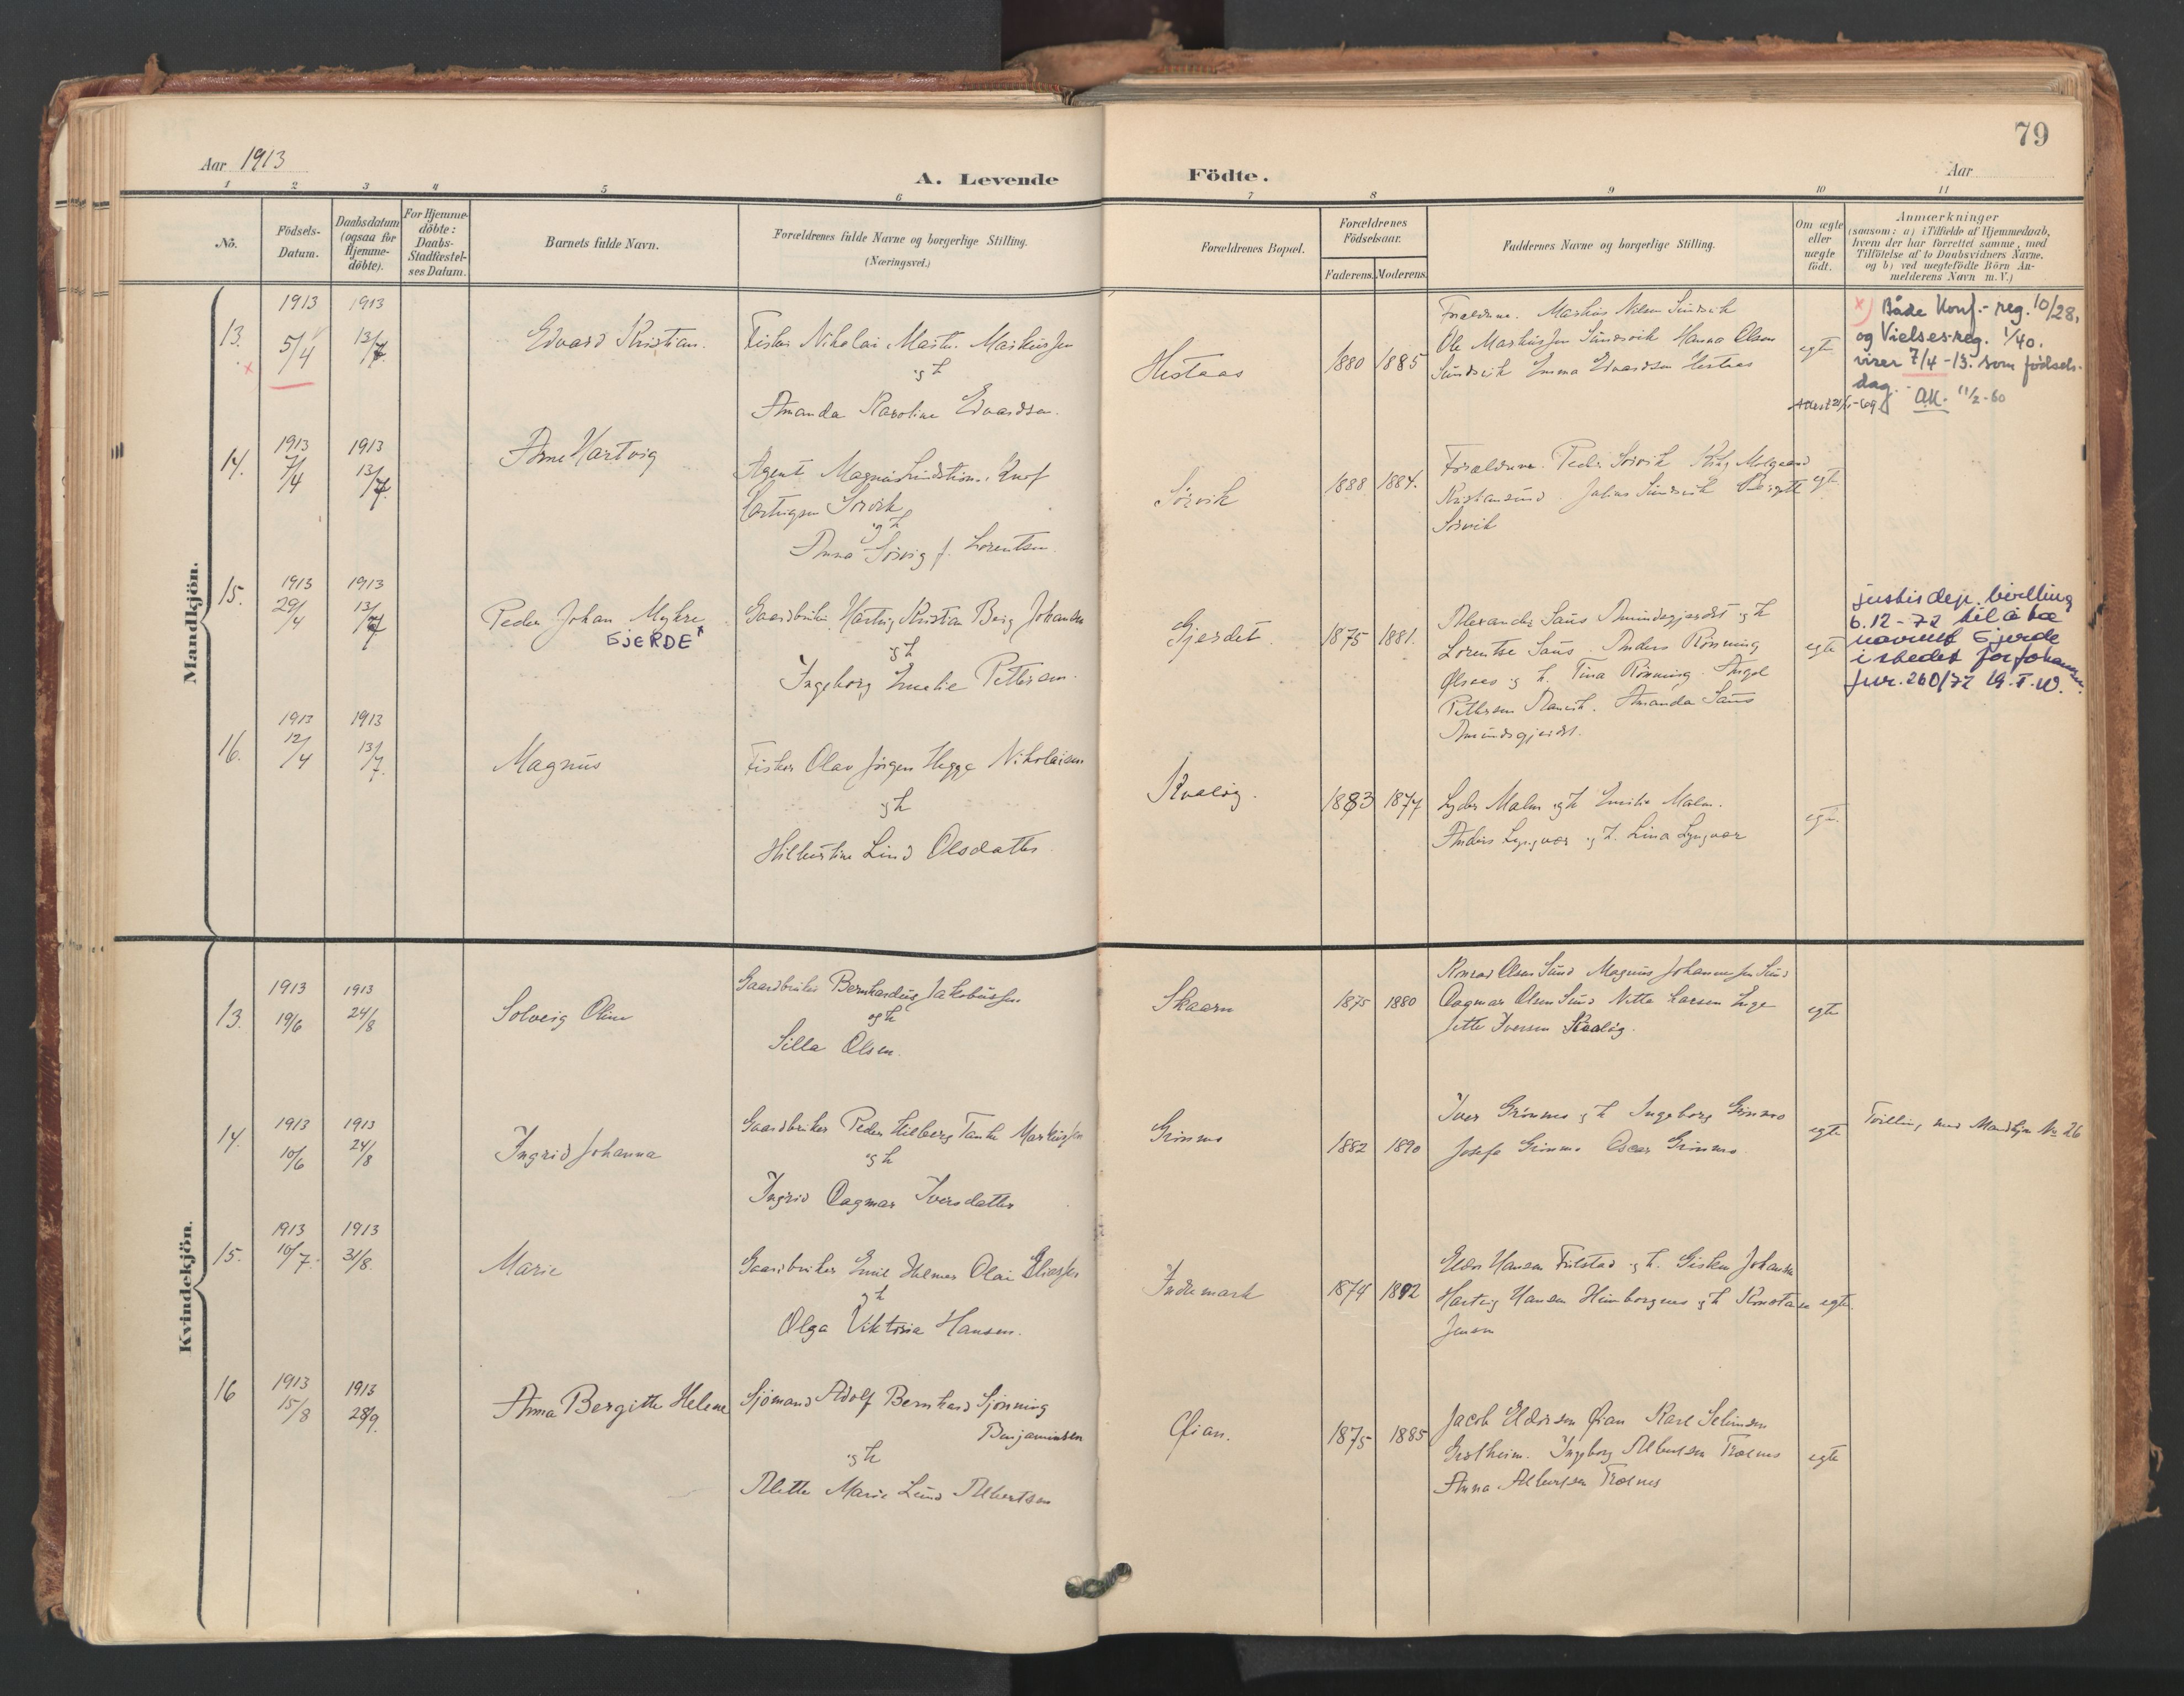 79
Aar 1913
A. Levende Födte.
Aar
1 2 3 4 5 6 7 8 9 10 11
No.
Födsels-Datum.
Daabsdatum (ogsaa for Hjemme-döbte).
For Hjemme-döbte: Daabs-Stadfæstel-ses Datum.
Barnets fulde Navn.
Forældrenes fulde Navne og borgerlige Stilling.
(Næringsvei.)
Forældrenes Bopæl.
Forældrenes Födselsaar.
Faderens. Moderens.
Faddernes Navne og borgerlige Stilling.
Om ægte eller uægte födt.
Anmærkninger
(saasom: a) i Tilfælde af Hjemmedaab,
hvem der har forrettet samme, med
Tilföielse af to Daabsvidners Navne.
og b) ved uægtefödte Börn An-
melderens Navn m. V.)
Mandkjön.
13.
1913
5/4
1913
13/7
Edvard Kristian.
Fisker Nikolai Martin Markussen
og h
Amanda Karoline Edvardsen.
Hestaas
1880 1885
Forældrene. Markus Nilsen Sundsvik
Ole Markussen Sundsvik Hanna Olsen
Sundsvik Emma Edvardsen Hestaas
egte
x) Både Konf.-reg. 10/28,
og Vielses-reg. 1/40.
viser 7/4-13. som fødsels-
dag.
11/2-60
14.
1913
7/4
1913
13/7.
Arne Hartvig
Agent Magnus Knof
Hartvigsen Sørvik
og h
Anna Sørvig f. Lorentsen.
Sørvik
1888 1884.
Forældrene. Peder Sørvik
Kristiansund. Julius Sundsvik
Sørvik
egte
15.
1913
29/4
1913
13/7
Peder Johan Myhre
GJERDE x
Gaardbruker Hartvig Kristian Berg Johansen
og h
Ingeborg Emelie Pettersen.
Gjerdet.
1875 1881.
Alexander Saus Amundsgjerdet og h
Lorentse Saus. Anders Rønning
og h. Tina Rønning.
Pettersen. Amanda Saus
Amundsgjerdet.
egte
justisdep. bevilling
6.12-72 til å ta
navnet Gjerde
i stedet for Johansen
jnr. 260/72
16.
1913
12/4
1913
13/7.
Magnus
Fisker Olav Jørgen Hegge Nikolaisen
og h
Hilbertine Lind Olsdatter.
Kvaløy.
1883 1877
Lyder Malm og h Emilie Malm.
Anders Lyngvær og h. Lina Lyngvær
egte.
Kvindekjön.
13.
1913
19/6
1913
24/8
Solveig Oline
Gaardbruker Bernhardus Jakobussen
og h
Silla Olsen.
Skaaren
1875 1880
Konrad Olsen Sund Magnus Johannessen Sund
Dagmar Olsen Sund Nitta Larsen
Jette Iversen
egte
14.
1913
10/6
1913
24/8
Ingrid Johanna
Gaardbruker Peder Hilberg Tanke Markussen
og h
Ingrid Dagmar Iversdatter
Grönmo
1882 1890
Iver Grönmo og h Ingeborg Grönmo
Josefa Grönmo Oscar Grönmo
egte
Tvilling med Mandkjøn No 26
15.
1913
10/7.
1913
31/8.
Marie
Gaardbruker Emil Helmer Olai Eliassen
og h
Olga Viktoria Hansen.
Indremark
1874 1892
Elder Hansen Fulstad og h. Gisken Johanna
Hartvig Hansen og h Konstanse
Jensen
egte.
16
1913
15/8
1913
28/9.
Anna Bergitte Helene
Sjömand Adolf Bernhard Sjønning
Benjaminsen
og h
Alette Marie Lund Albertsen
Øian.
1875 1885
Jacob Eldorsen Øian Karl Selimsen
Ingeborg Albertsen Trælnes
Anna Albertsen Trælnes
egte